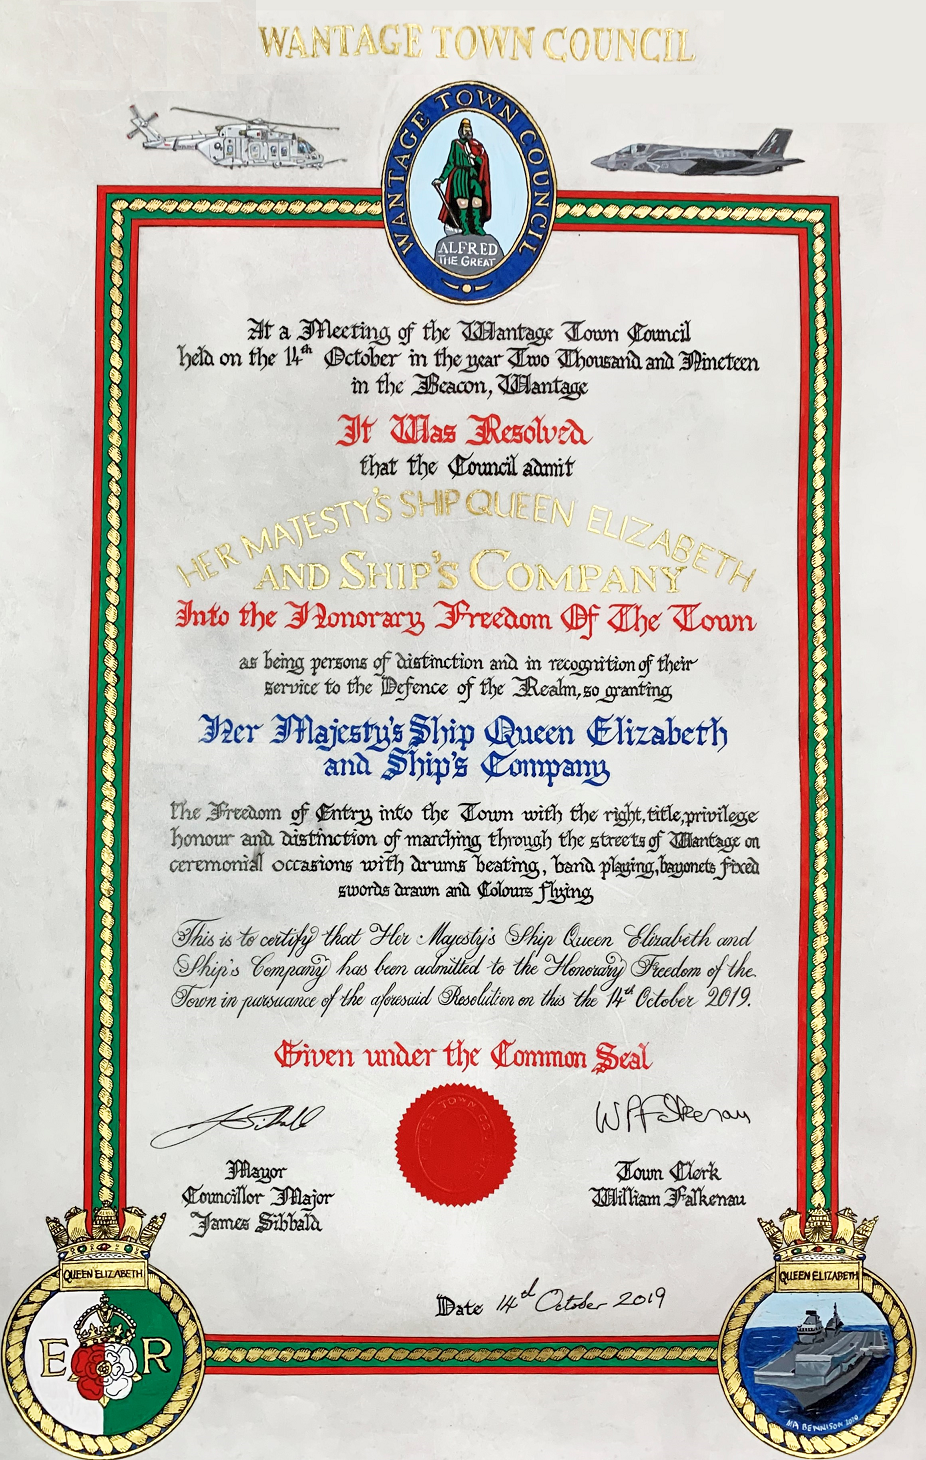 WANTAGE TOWN COUNCIL
WANTAGE TOWN COUNCIL
ALFRED
THE GREAT
At a Meeting of the Wantage Town Council
held on the 14th October in the year Two Thousand and Nineteen
in the Beacon, Wantage
It Was Resolved
that the Council admit
HER MAJESTY'S SHIP QUEEN ELIZABETH
AND SHIP'S COMPANY
Into the Honorary Freedom Of The Town
as being persons of distinction and in recognition of their
service to the Defence of the Realm, so granting
Her Majesty's Ship Queen Elizabeth
and Ship's Company
the Freedom of Entry into the Town with the right, title, privilege
honour and distinction of marching through the streets of Wantage on
ceremonial occasions with drums beating, band playing, bayonets fixed
swords drawn and Colours flying
This is to certify that Her Majesty's Ship Queen Elizabeth and
Ship's Company has been admitted to the Honorary Freedom of the
Town in pursuance of the aforesaid Resolution on this the 14th October 2019.
Given under the Common Seal
J Sibbald
W P Falkenau
Mayor
Councillor Major
James Sibbald
Town Clerk
William Falkenau
Date 14th October 2019
QUEEN ELIZABETH
E R
QUEEN ELIZABETH
BENNISON 2019